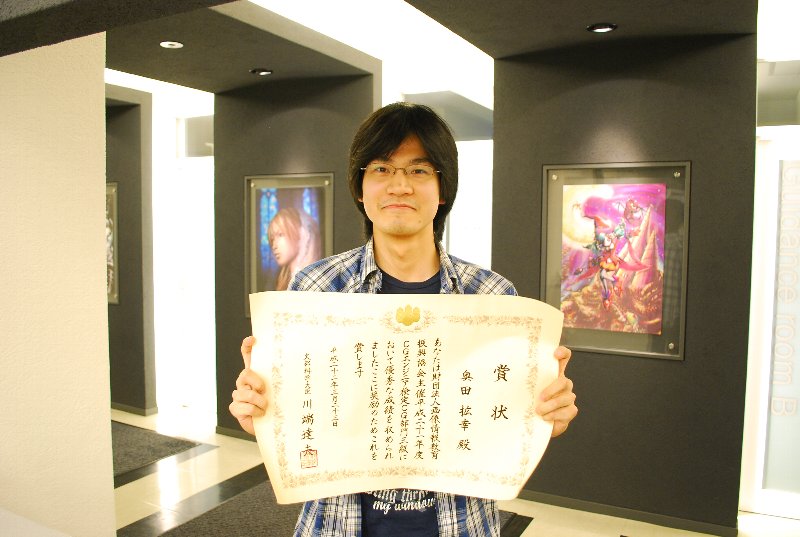 賞状
奥田 拡幸 殿
あなたは財団法人画像情報教育
振興協会主催平成二十一年度
CGエンジニア検定CG部門三級に
おいて優秀な成績を収められ
ましたここに奨励のためこれを
賞します
平成二十二年二月二十二日
文部科学大臣 川端達夫
my window
Guidance room B